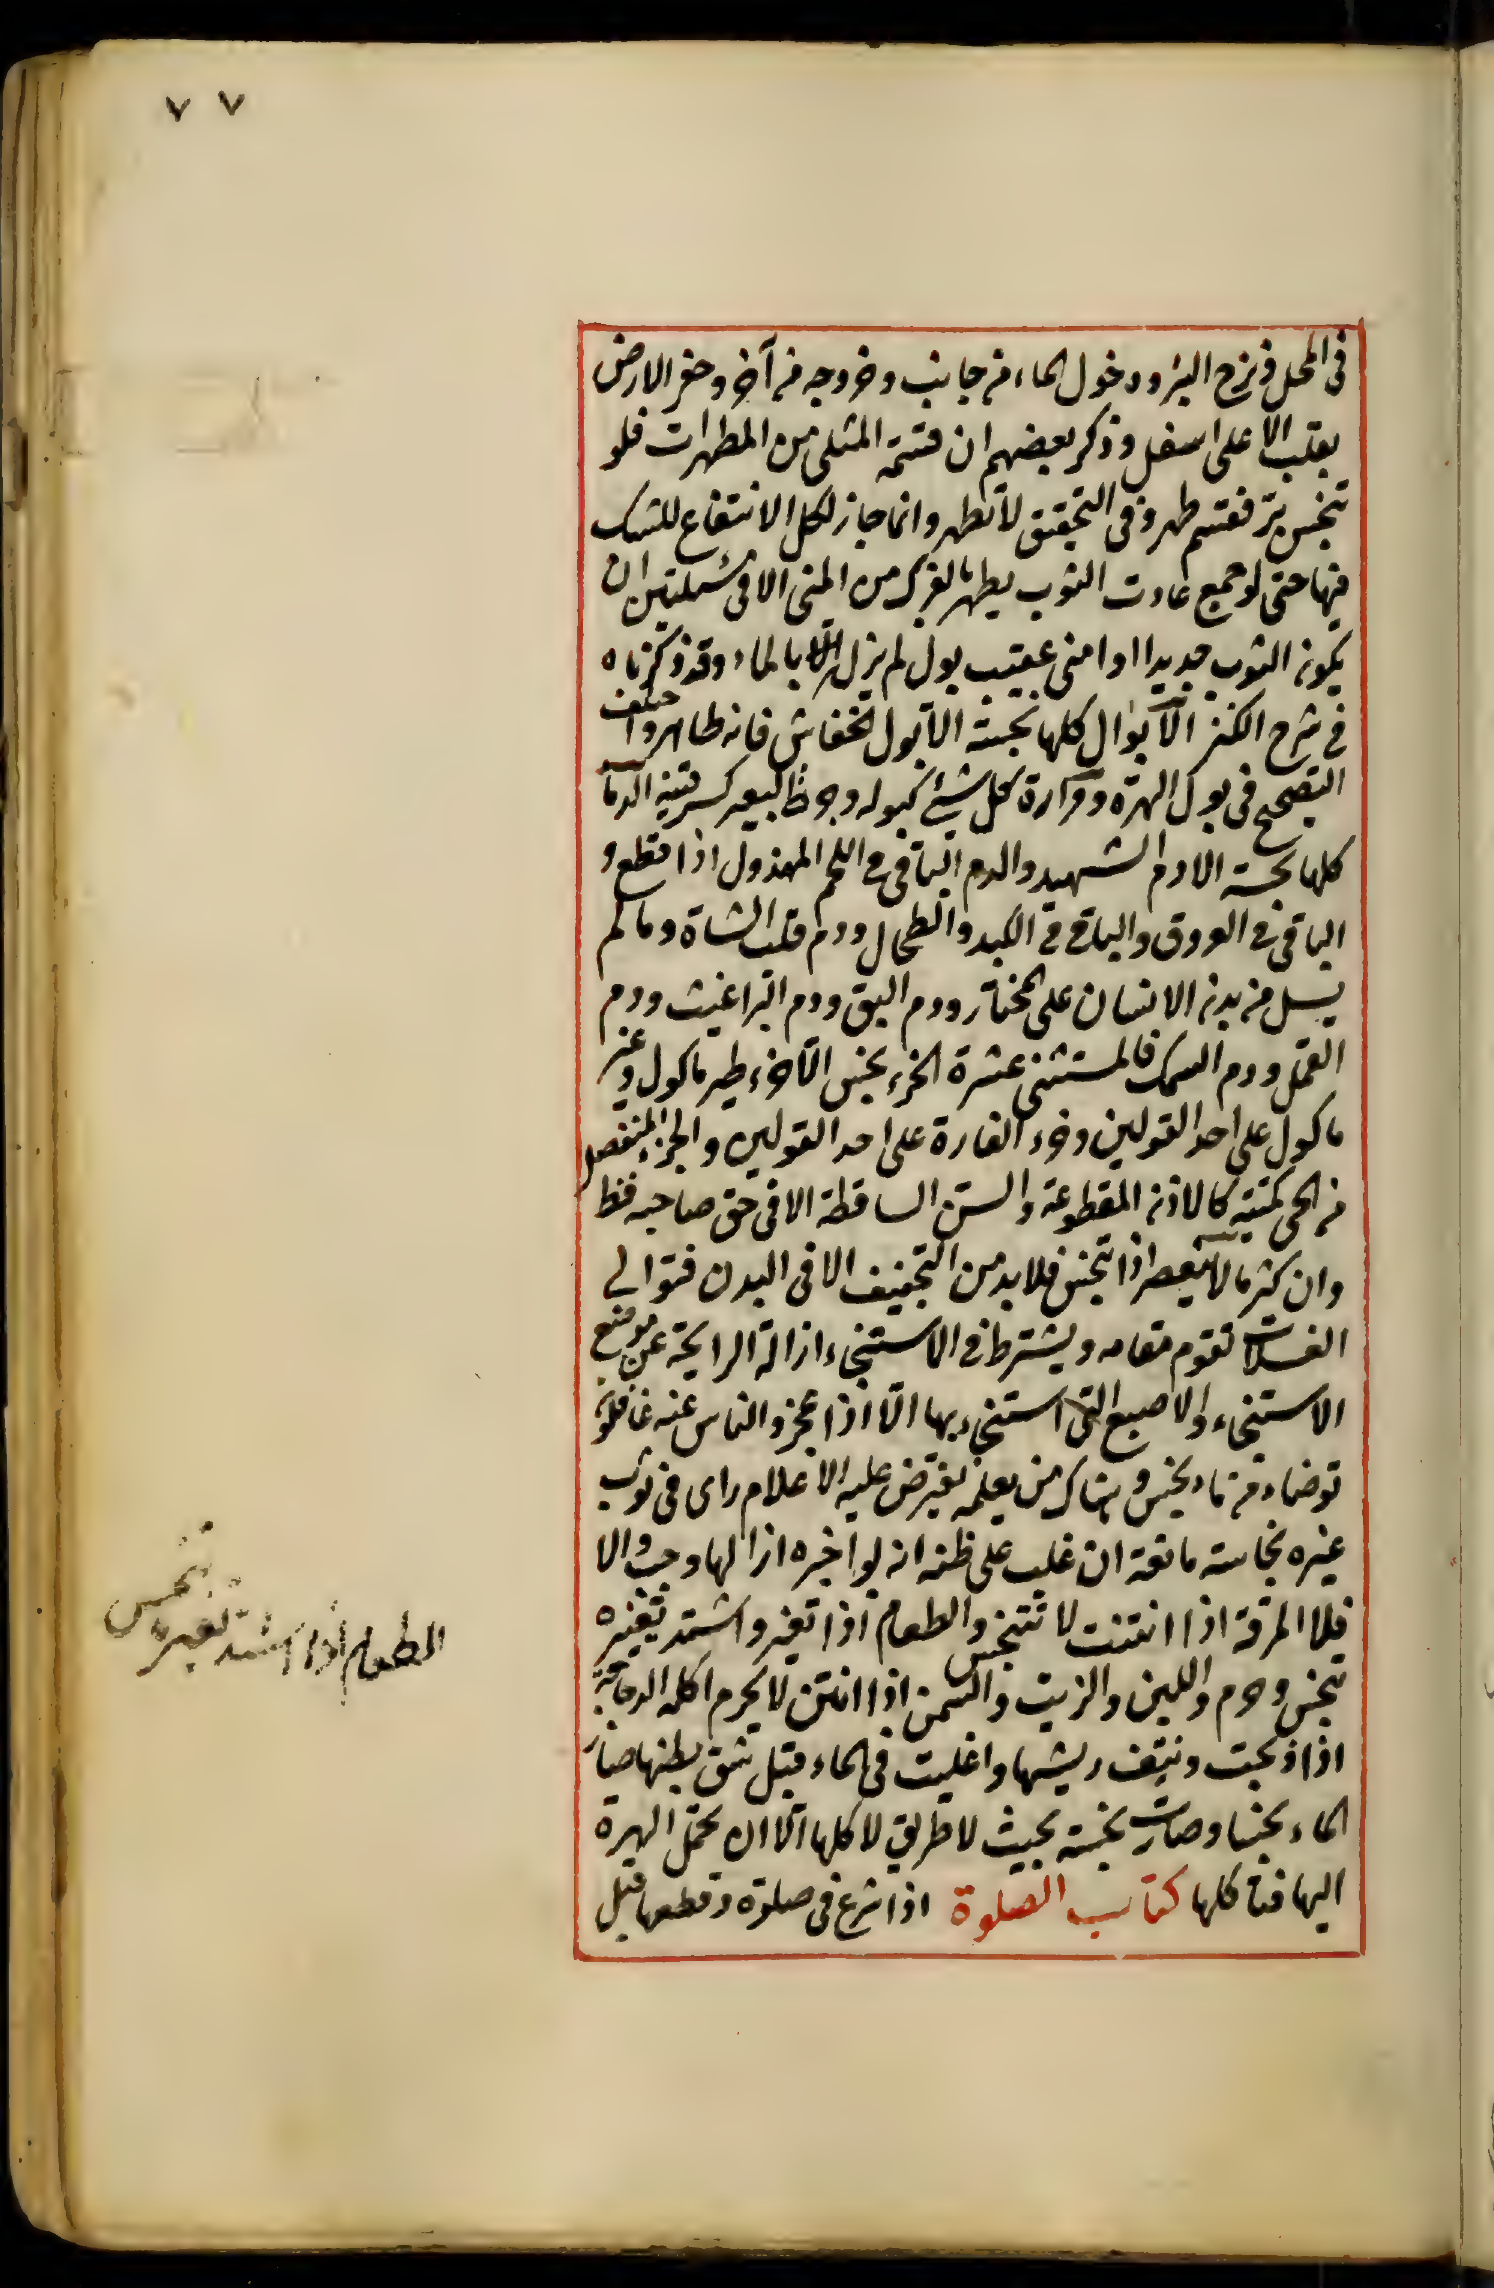 ٧ ٧
فى المحل ونزح البئر ودخول الماء من جانب وخروجه من آخر وحفر الارض
بقلب الاعلى اسفل وذكر بعضهم ان قسمة المثلى من المطهرات فلو
تنجس بر فقسم طهر وفى التحقيق لا تطهر وانما جاز لكل الانتفاع للشك
فيها حتى لو جمع عادت الثوب يطهر بالفرك من المنى الا فى مسئلتين ان
يكون الثوب جديدا او امنى عقيب بول لم يزل الا بالماء وقد ذكرناه
فى شرح الكنز الآبوال كلها نجسة الا بول الخفاش فانه طاهر واختلف
التصحيح فى بول الهرة ومرارة كل شئ كبوله وجرة البعير كسرقينه الدماء
كلها نجسة الا دم الشهيد والدم الباقى فى اللحم المهزول اذا قطع و
الباقى فى العروق والباقى فى الكبد والطحال ودم قلب الشاة وما لم
يسل من بدن الانسان على المختار ودم البق ودم البراغيث ودم
القمل ودم السمك فالمستثنى عشرة الخرء نجس الا خرء طير ماكول وغير
ماكول على احد القولين وخرء الفارة على احد القولين والجزء المنفصل
من الحى كميتته كالاذن المقطوعة والسن الساقطة الا فى حق صاحبه فط
وان كثر ما لا ينعصر اذا تنجس فلا بد من التجفيف الا فى البدن فتوالى
الغسلات تقوم مقامه ويشترط فى الاستنجاء ازالة الرايحة عن موضع
الاستنجاء والاصبع التى استنجى بها الا اذا عجز والناس عنه غافلون
توضاء من ماء نجس وهناك من يعلمه يفترض عليه الاعلام راى فى ثوب
غيره نجاسة مانعة ان غلب على ظنه انه لو اخبره ازالها وجب والا
فلا المرقة اذا انتنت لا تتنجس والطعام اذا تغير واشتد تغيره
تنجس وحرم واللبن والزيت والسمن اذا انتن لا يحرم اكله الدجاجة
اذا ذبحت ونتف ريشها واغليت فى الماء قبل شق بطنها صار
الماء نجسا وصارت نجسة بحيث لا طريق لاكلها الا ان تحمل الهرة
اليها فتاكلها كتاب الصلوة اذا شرع فى صلوة وقطعها قبل
الطعام اذا اشتد تغيره تنجس